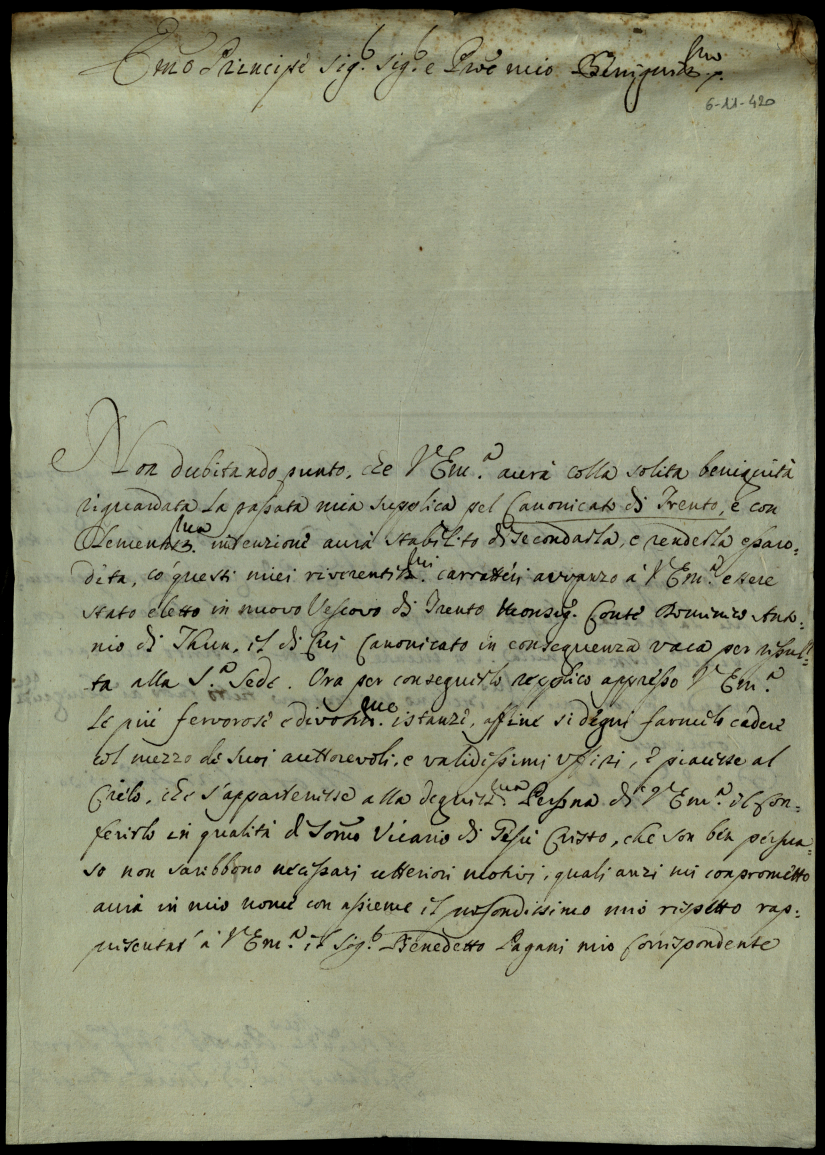 Em̃o Principe Sig.r Sig.r e Prõe mio Benignis.mo
6-11-420
Non dubitando punto, che V Em.a aurà colla solita benignità
riguardata la passata mia supplica pel Canonicato di Trento, e con
Clementis.ma intenzione aurà stabilito di secondarla, e renderla esau:
dita, co' questi miei riverentis.mi carratteri avvanzo à V Em.a essere
stato eletto in nuovo Vescovo di Trento Monsig. Conte Dominico Anto:
nio di Thun, il di Cui Canonicato in conseguenza vaca per
ta alla S.a Sede. Ora per conseguirlo replico appresso V Em.a
le più fervorose e divotis.me istanze, affine si degni farmelo cadere
col mezzo de suoi auttorevoli, e validissimi Uffizi, e piacesse al
Cielo, che s'appartenesse alla degnis.ma Persona di V Em.a il con:
ferirlo in qualità di Som̃o Vicario di Giesù Cristo, che son ben persua:
so non sarebbono necessari ulteriori motivi, quali anzi mi comprometto
aurà in mio nome con assieme il profondissimo mio rispetto rap:
presentar' à V Em.a il Sig.r Benedetto Pagani mio Corrispondente